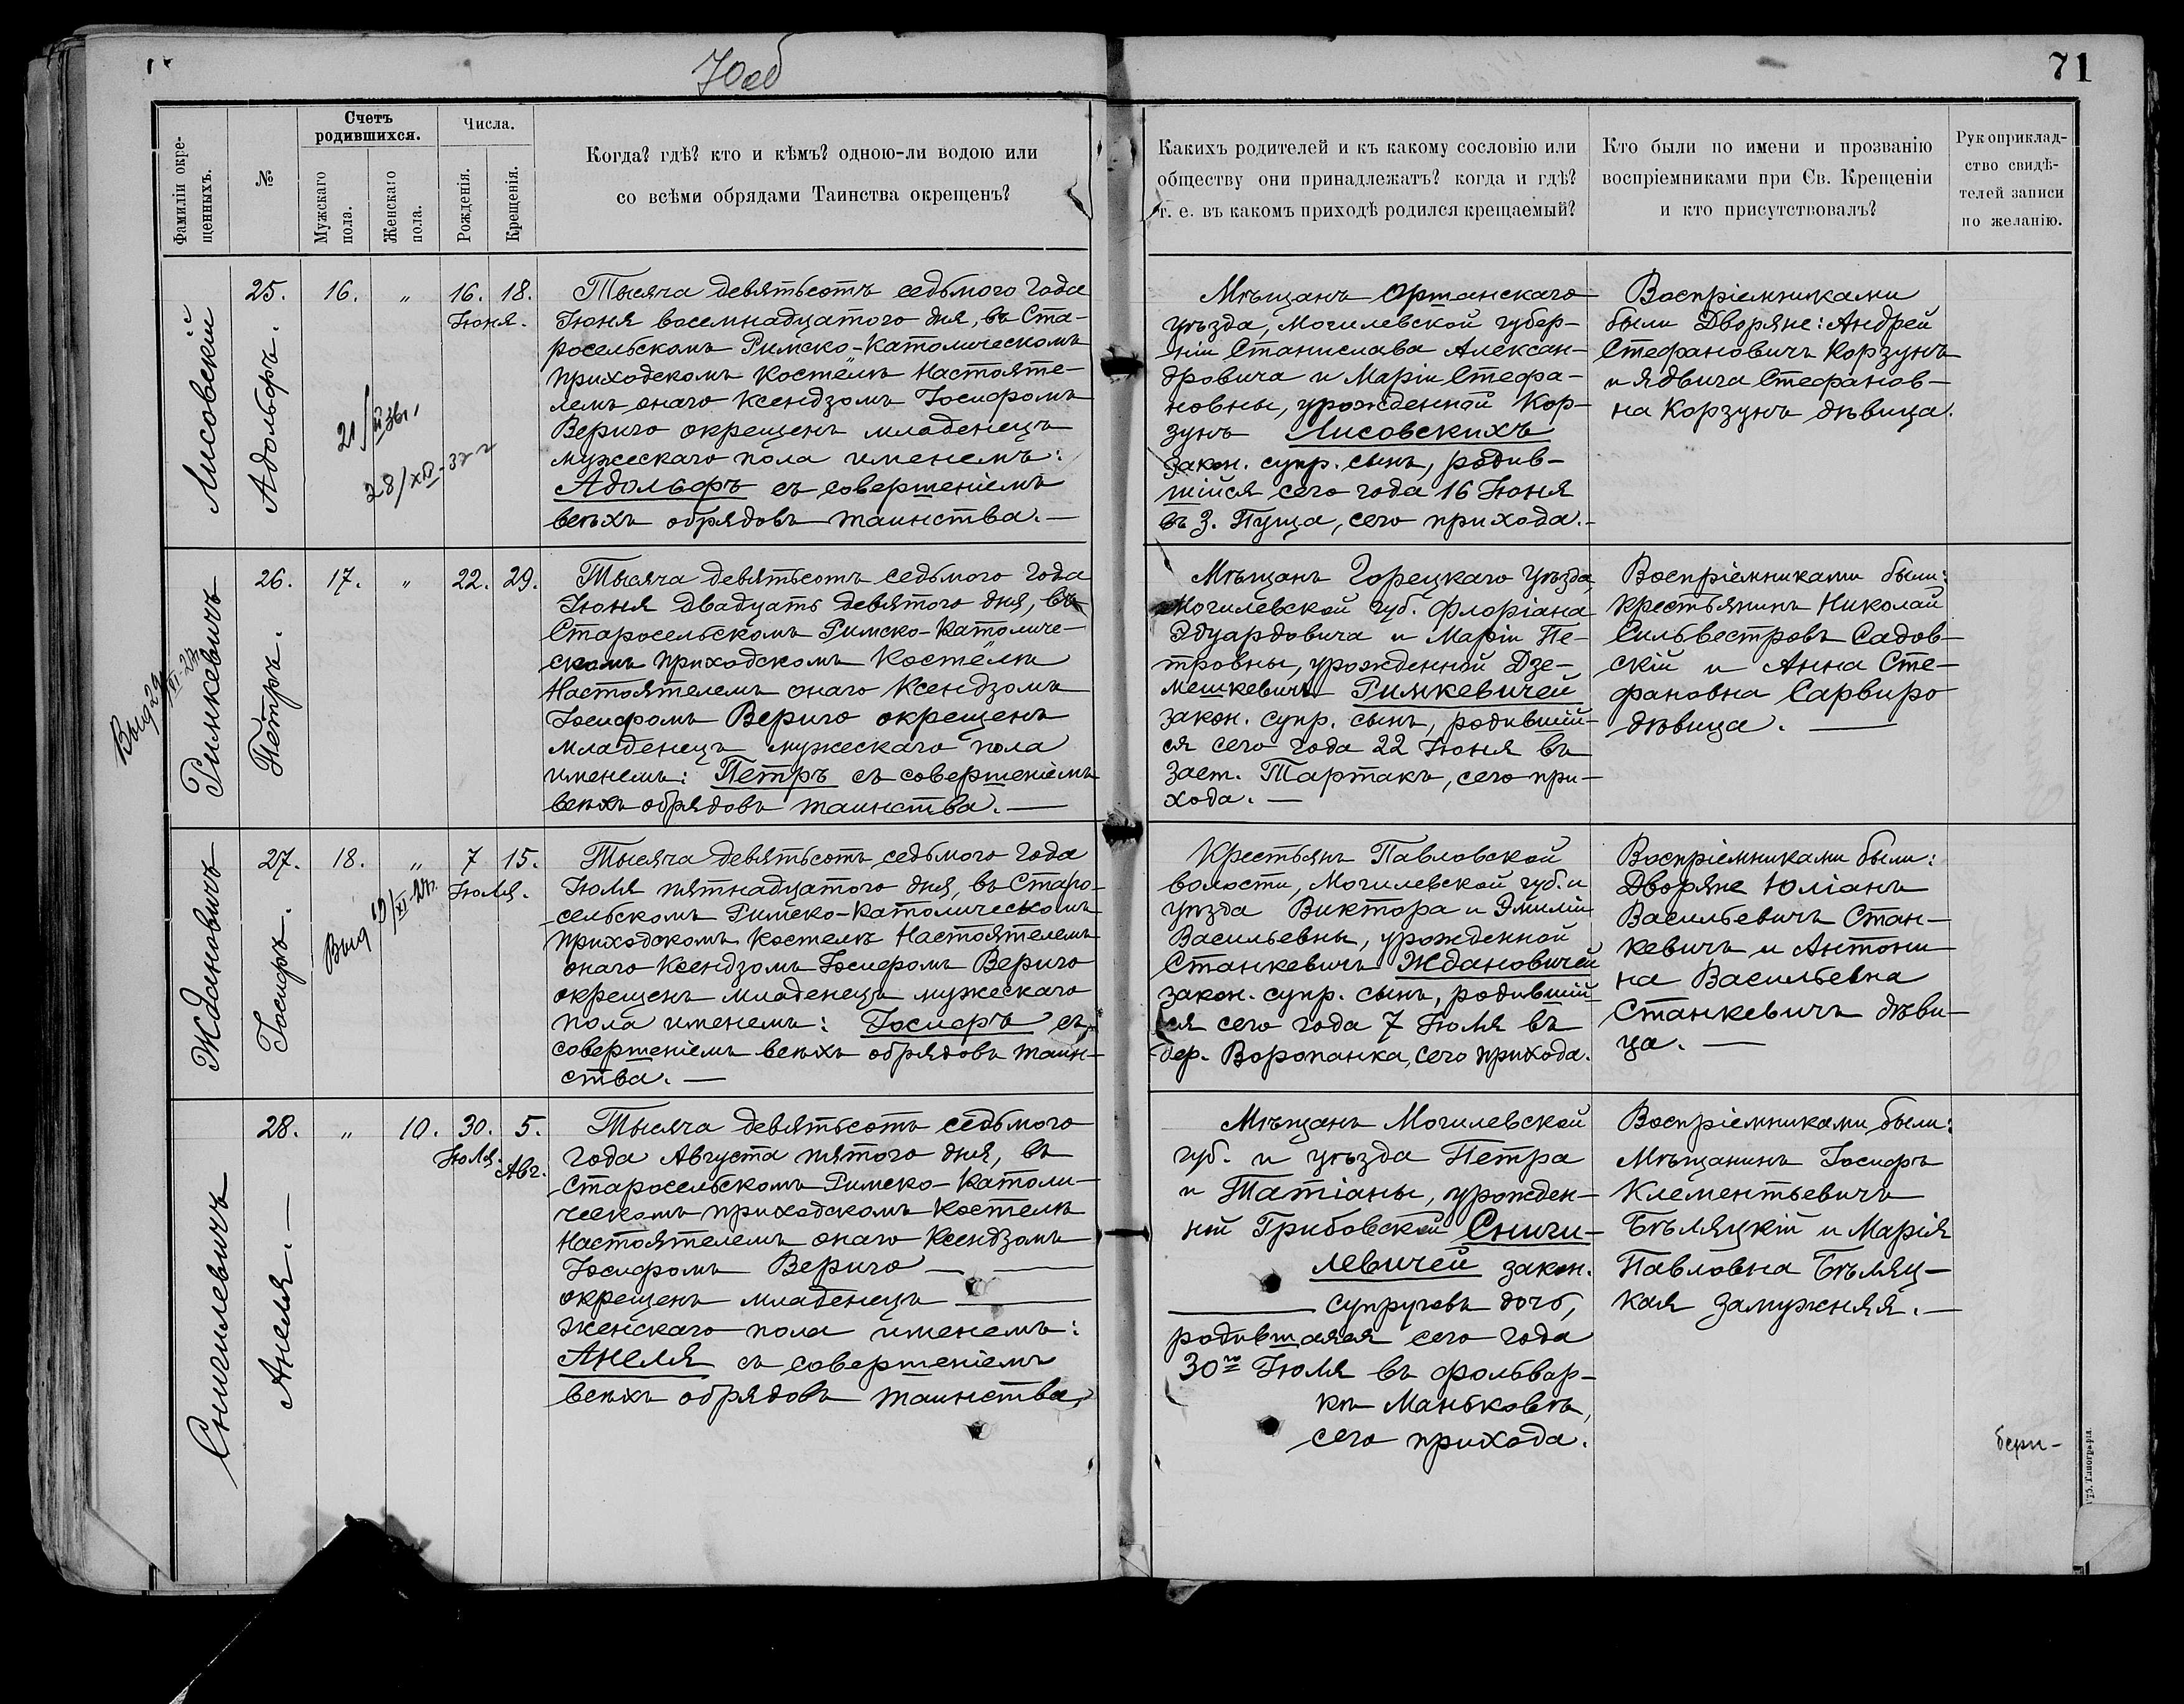 70об
71
Фамиліи окре-
щенныхъ.
№
Счетъ
родившихся.
Мужскаго
пола.
Женскаго
пола.
Числа.
Рожденія.
Крещенія.
Когда? гдѣ? кто и кѣмъ? одною-ли водою или
со всѣми обрядами Таинства окрещенъ?
Какихъ родителей и къ какому сословію или
обществу они принадлежатъ? когда и гдѣ?
т. е. въ какомъ приходѣ родился крещаемый?
Кто были по имени и прозванію
воспріемниками при Св. Крещеніи
и кто присутствовалъ?
Рукоприклад-
ство свидѣ-
телей записи
по желанію.
Лисовскій
25.
Адольфъ.
16.
"
16. 18.
Іюня.
28/XII-37 г
Тысяча девятьсотъ седьмого года
Іюня восемнадцатого дня, въ Ста-
росельскомъ Римско-Католическомъ
приходскомъ Костёлѣ Настояте-
лемъ онаго Ксендзомъ Іосифомъ
Вериго окрещенъ младенецъ
мужескаго пола именемъ:
Адольфъ съ совершеніемъ
всѣхъ обрядовъ таинства.—
Мѣщанъ Оршанскаго
уѣзда, Могилевской губер-
ніи Станислава Алексан-
дровича и Маріи Стефа-
новны, урожденной Кор-
зунъ Лисовскихъ
закон. супр. сынъ, родив-
шійся сего года 16 Іюня
въ З. Пуща, сего прихода.-
Воспріемниками
были Дворяне: Андрей
Стефановичъ Корзунъ
и Ядвига Стефанов-
на Корзунъ дѣвица.
Выд 29
XI-27г
Римкевичъ
26.
Петръ.
17.
"
22. 29.
Тысяча девятьсотъ седьмого года
Іюня двадцать девятого дня, въ
Старосельскомъ Римско-Католиче-
скомъ приходскомъ Костёлѣ
Настоятелемъ онаго Ксендзомъ
Іосифомъ Вериго окрещенъ
младенецъ мужескаго пола
именемъ: Петръ съ совершеніемъ
всѣхъ обрядовъ таинства.—
Мѣщанъ Горецкаго уѣзда,
Могилевской губ. Флоріана
Эдуардовича и Маріи Пе-
тровны, урожденной Дзе-
мешкевичъ Римкевичей
закон. супр. сынъ, родившій-
ся сего года 22 Іюня въ
заст. Тартакъ, сего при-
хода.—
Воспріемниками были:
крестьянинъ Николай
Сильвестровъ Садов-
скій и Анна Сте-
фановна Сарвиро
дѣвица.—
Ждановичъ
27.
Іосифъ.
18.
"
7 15.
Іюля.
Выд
XI-27г.
Тысяча девятьсотъ седьмого года
Іюля пятнадцатого дня, въ Старо-
сельскомъ Римско-Католическомъ
приходскомъ Костелѣ Настоятелемъ
онаго Ксендзомъ Іосифомъ Вериго
окрещенъ младенецъ мужескаго
пола именемъ: Іосифъ съ
совершеніемъ всѣхъ обрядовъ таин-
ства.—
Крестьянъ Павловской
волости, Могилевской губ. и
уѣзда Виктора и Эмиліи
Васильевны, урожденной
Станкевичъ Ждановичей
закон. супр. сынъ, родившій-
ся сего года 7 Іюля въ
дер. Воропанка, сего прихода.
Воспріемниками были:
Дворяне Юліанъ
Васильевичъ Стан-
кевичъ и Антони-
на Васильевна
Станкевичъ дѣви-
ца.—
Снигилевичъ
28.
Анеля.—
"
10.
30. 5.
Іюля.
Авг.
Тысяча девятьсотъ седьмого
года Августа пятого дня, въ
Старосельскомъ Римско-Католи-
ческомъ приходскомъ Костелѣ
Настоятелемъ онаго Ксендзомъ
Іосифомъ Вериго—
окрещенъ младенецъ—
женскаго пола именемъ:
Анеля съ совершеніемъ
всѣхъ обрядовъ таинства,
Мѣщанъ Могилевской
губ. и уѣзда Петра
и Татіаны, урожден-
ной Грибовской Сниги-
левичей закон.
супруговъ дочь,
родившаяся сего года
30го Іюля въ фольвар-
кѣ Маньковѣ,
сего прихода.
Воспріемниками были:
Мѣщанинъ Іосифъ
Клементьевичъ
Бѣляцкій и Марія
Павловна Бѣляц-
кая замужняя.—